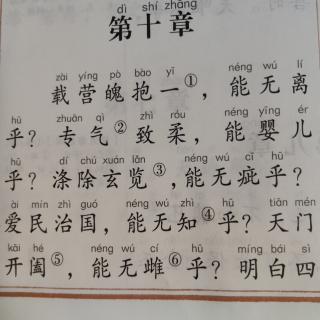 dì shí zhāng
第十章
zài yíng pò bào yī néng wú lí
载营魄抱一①，能无离
hū zhuān qì zhì róu néng yīng ér
乎？专气②致柔，能婴儿
hū dí chú xuán lǎn néng wú cī hū
乎？涤除玄览③，能无疵乎？
ài mín zhì guó néng wú zhì hū tiān mén
爱民治国，能无知④乎？天门
kāi hé néng wú cí hū míng bái sì
开阖⑤，能无雌⑥乎？明白四